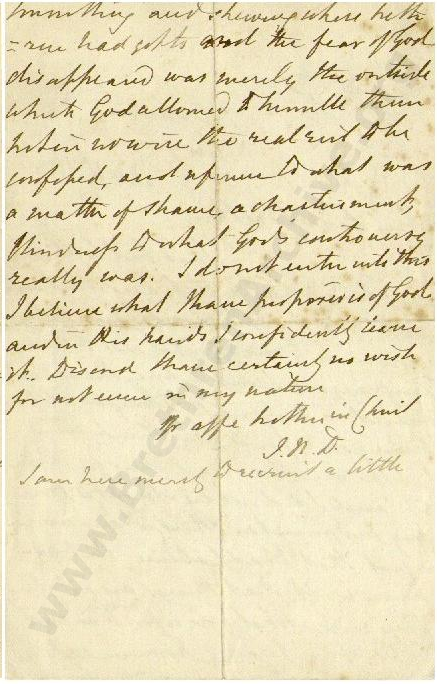 humbling and shewing where breth
=ren had gifts and the fear of God
disappeared was merely the outside
which God allowed to humble them
but in no wise the real evil to be
confessed, and reference to what was
a matter of shame, a chastisement,
blindness to what God's controversy
really was. I do not enter into this
I believe what I have proposed is of God
and in His hands I confidently leave
it. Discord I have certainly no wish
for not even in my nature
Yr affe brother in Christ
J.N.D.
I am here merely to recruit a little
www.Brethren